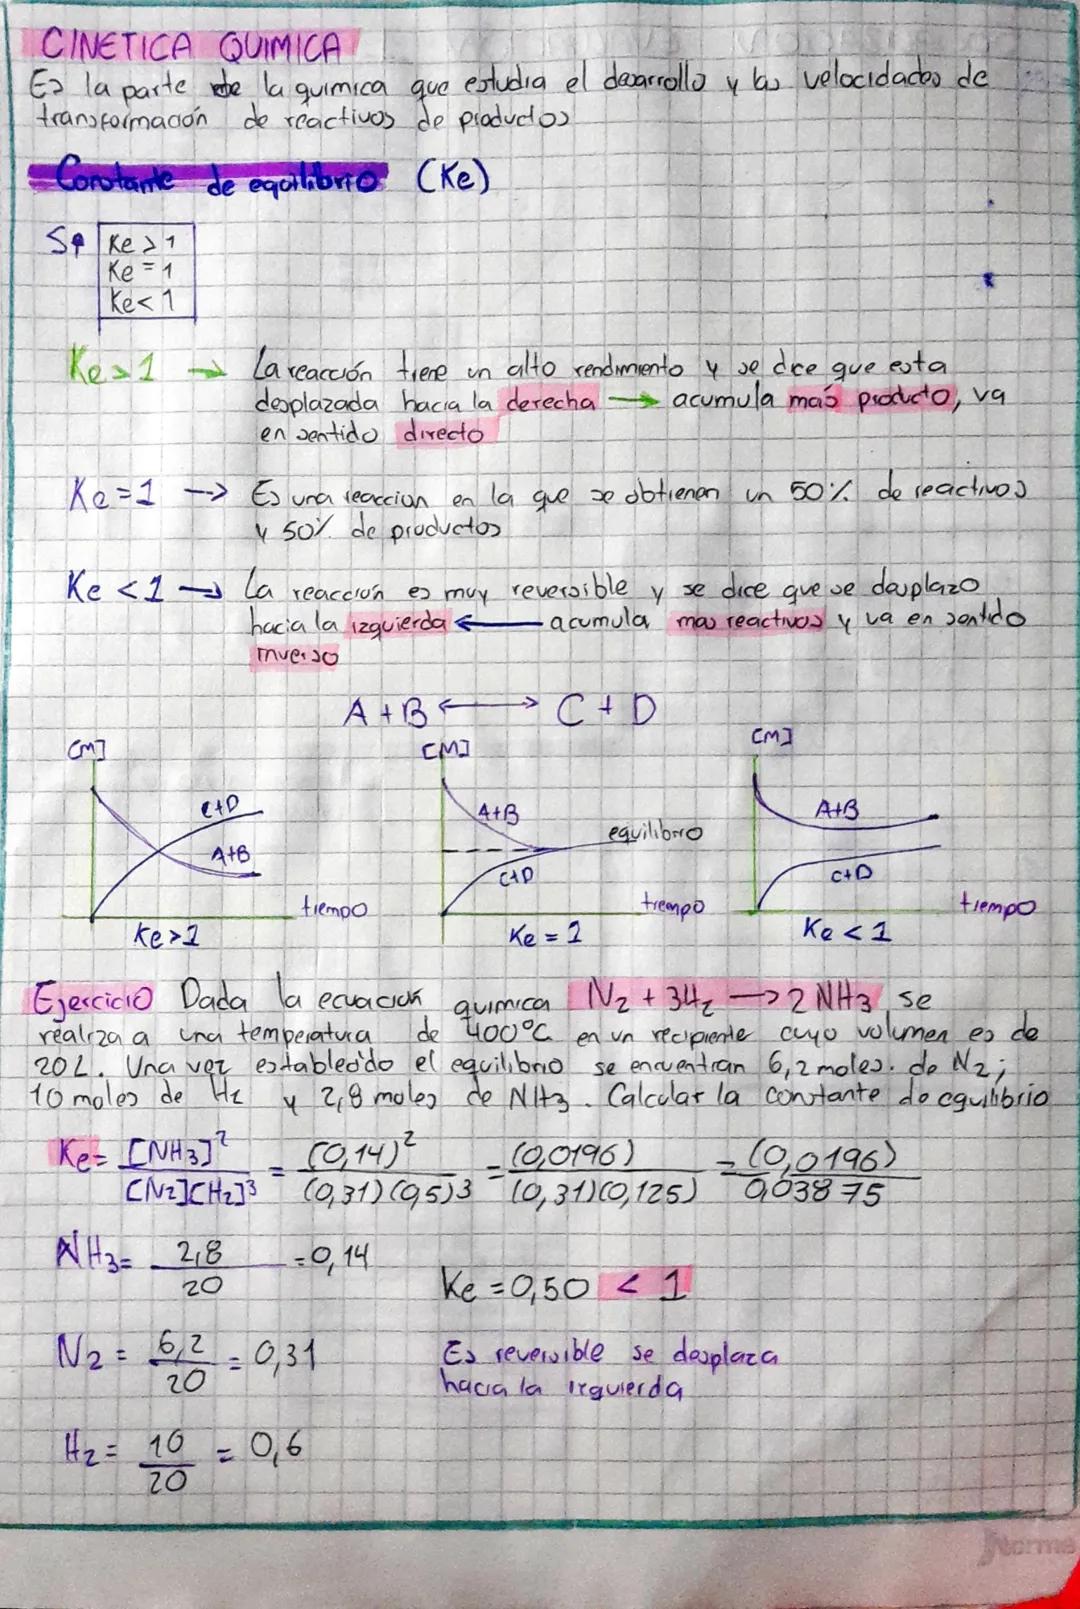 CINETICA QUIMICA
Es la parte de la quimica que estudia el desarrollo y las velocidades de
transformación de reactivos de productos
Constante de equilibrio (Ke)
Si Ke > 1
Ke = 1
Ke < 1
Ke > 1 → La reacción tiene un alto rendimiento y se dice que esta
desplazada hacia la derecha → acumula más producto, va
en sentido directo
Ke = 1 → Es una reaccion en la que se obtienen un 50% de reactivos
y 50% de productos
Ke < 1 → La reacción es muy reversible y se dice que se desplazo
hacia la izquierda ← acumula mas reactivos y va en sentido
inverso
A + B ↔ C + D
[M] [M] [M]
C+D A+B A+B
A+B equilibrio
C+D C+D
tiempo tiempo tiempo
Ke > 1 Ke = 1 Ke < 1
Ejercicio Dada la ecuación quimica N2 + 3H2 → 2 NH3 se
realiza a una temperatura de 400°C en un recipiente cuyo volumen es de
20L. Una vez establecido el equilibrio se encuentran 6,2 moles. de N2;
10 moles de H2 y 2,8 moles de NH3. Calcular la constante de equilibrio
Ke = [NH3]² / [N2][H2]³ = (0,14)² / (0,31)(0,5)3 = (0,0196) / (0,31)(0,125) = (0,0196) / 0,03875
NH3 = 2,8 / 20 = 0,14
Ke = 0,50 < 1
N2 = 6,2 / 20 = 0,31
Es reversible se desplaza
hacia la izquierda
H2 = 10 / 20 = 0,6
Norma